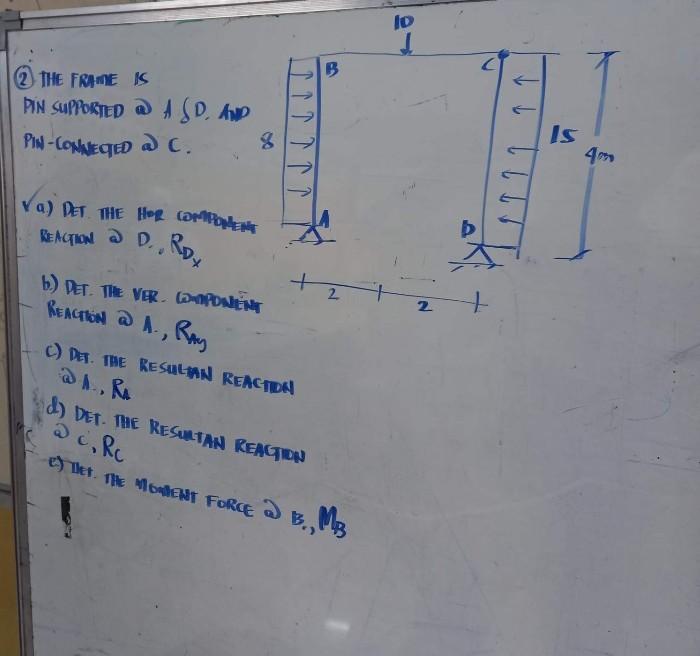 ② THE FRAME IS
PIN SUPPORTED @ A & D. AND
PIN-CONNECTED @ C.
√ a) DET. THE HOR COMPONENT
REACTION @ D., RDx
b.) DET. THE VER. COMPONENT
REACTION @ A., RAy
c) DET. THE RESULTAN REACTION
@ A., RA
d) DET. THE RESULTAN REACTION
@ C, RC
e) DET. THE MOMENT FORCE @ B., MB
10
B
C
8
15
4m
A
D
2
2